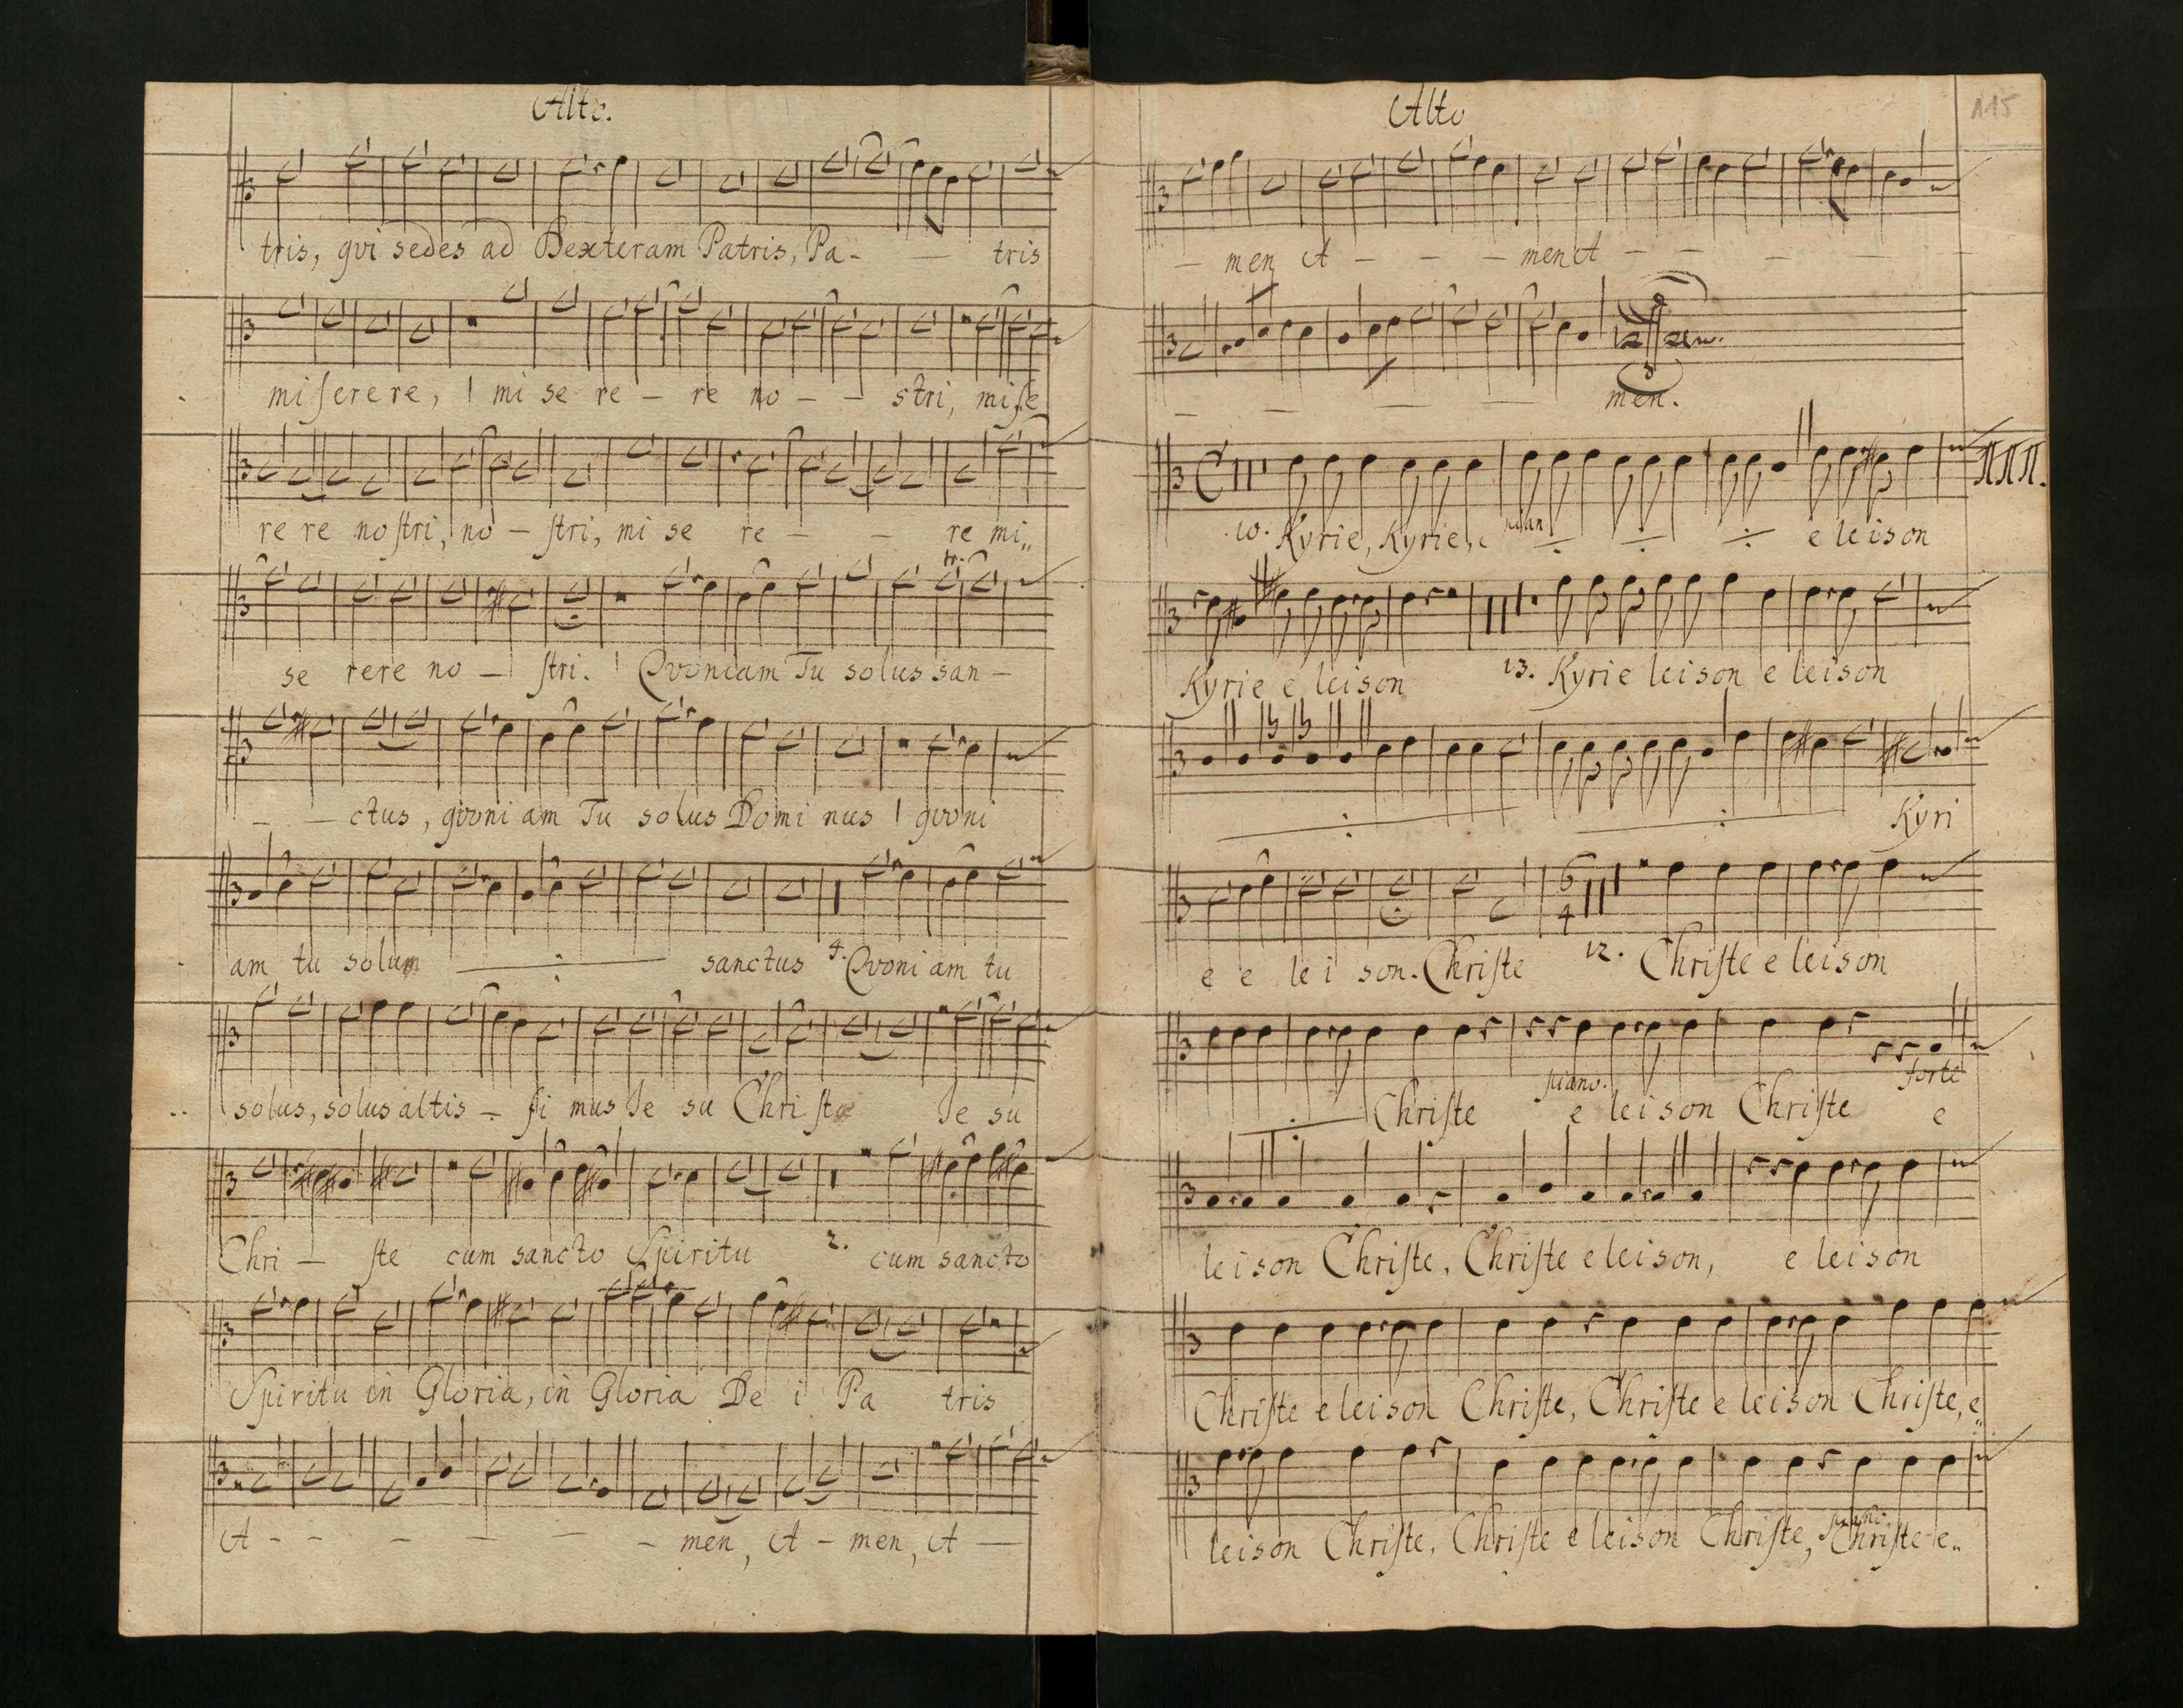 Alto.
tris, qvi sedes ad Dexteram Patris, Pa - — tris
miserere, mi se re – re no – – stri, mise
re re nostri, no – stri, mi se re – – re mi„
tr.
se rere no – stri. Qvoniam Tu solus san –
– – ctus, qvoni am Tu solus Domi nus qvoni
am tu solum sanctus 4. Qvoni am tu
solus, solus altis – si mus Je su Chri sto Je su
Chri – ste cum sancto Spiritu 2. cum sancto
Spiritu in Gloria, in Gloria De i Pa tris
A - - - - - - men, A – men, A —
Alto
115
— men A - - - men A - - - - -
men.
10. Kyrie, Kyrie, pian e leison
Kyrie e leison 13. Kyrie leison e leison
Kyri
6
4
e e le i son. Christe 12. Christe e leison
piano. forte
Christe e leison Christe e
leison Christe, Christe e leison, e leison
Christe e leison Christe, Christe e leison Christe, e„
leison Christe, Christe e leison Christe, Christe e„